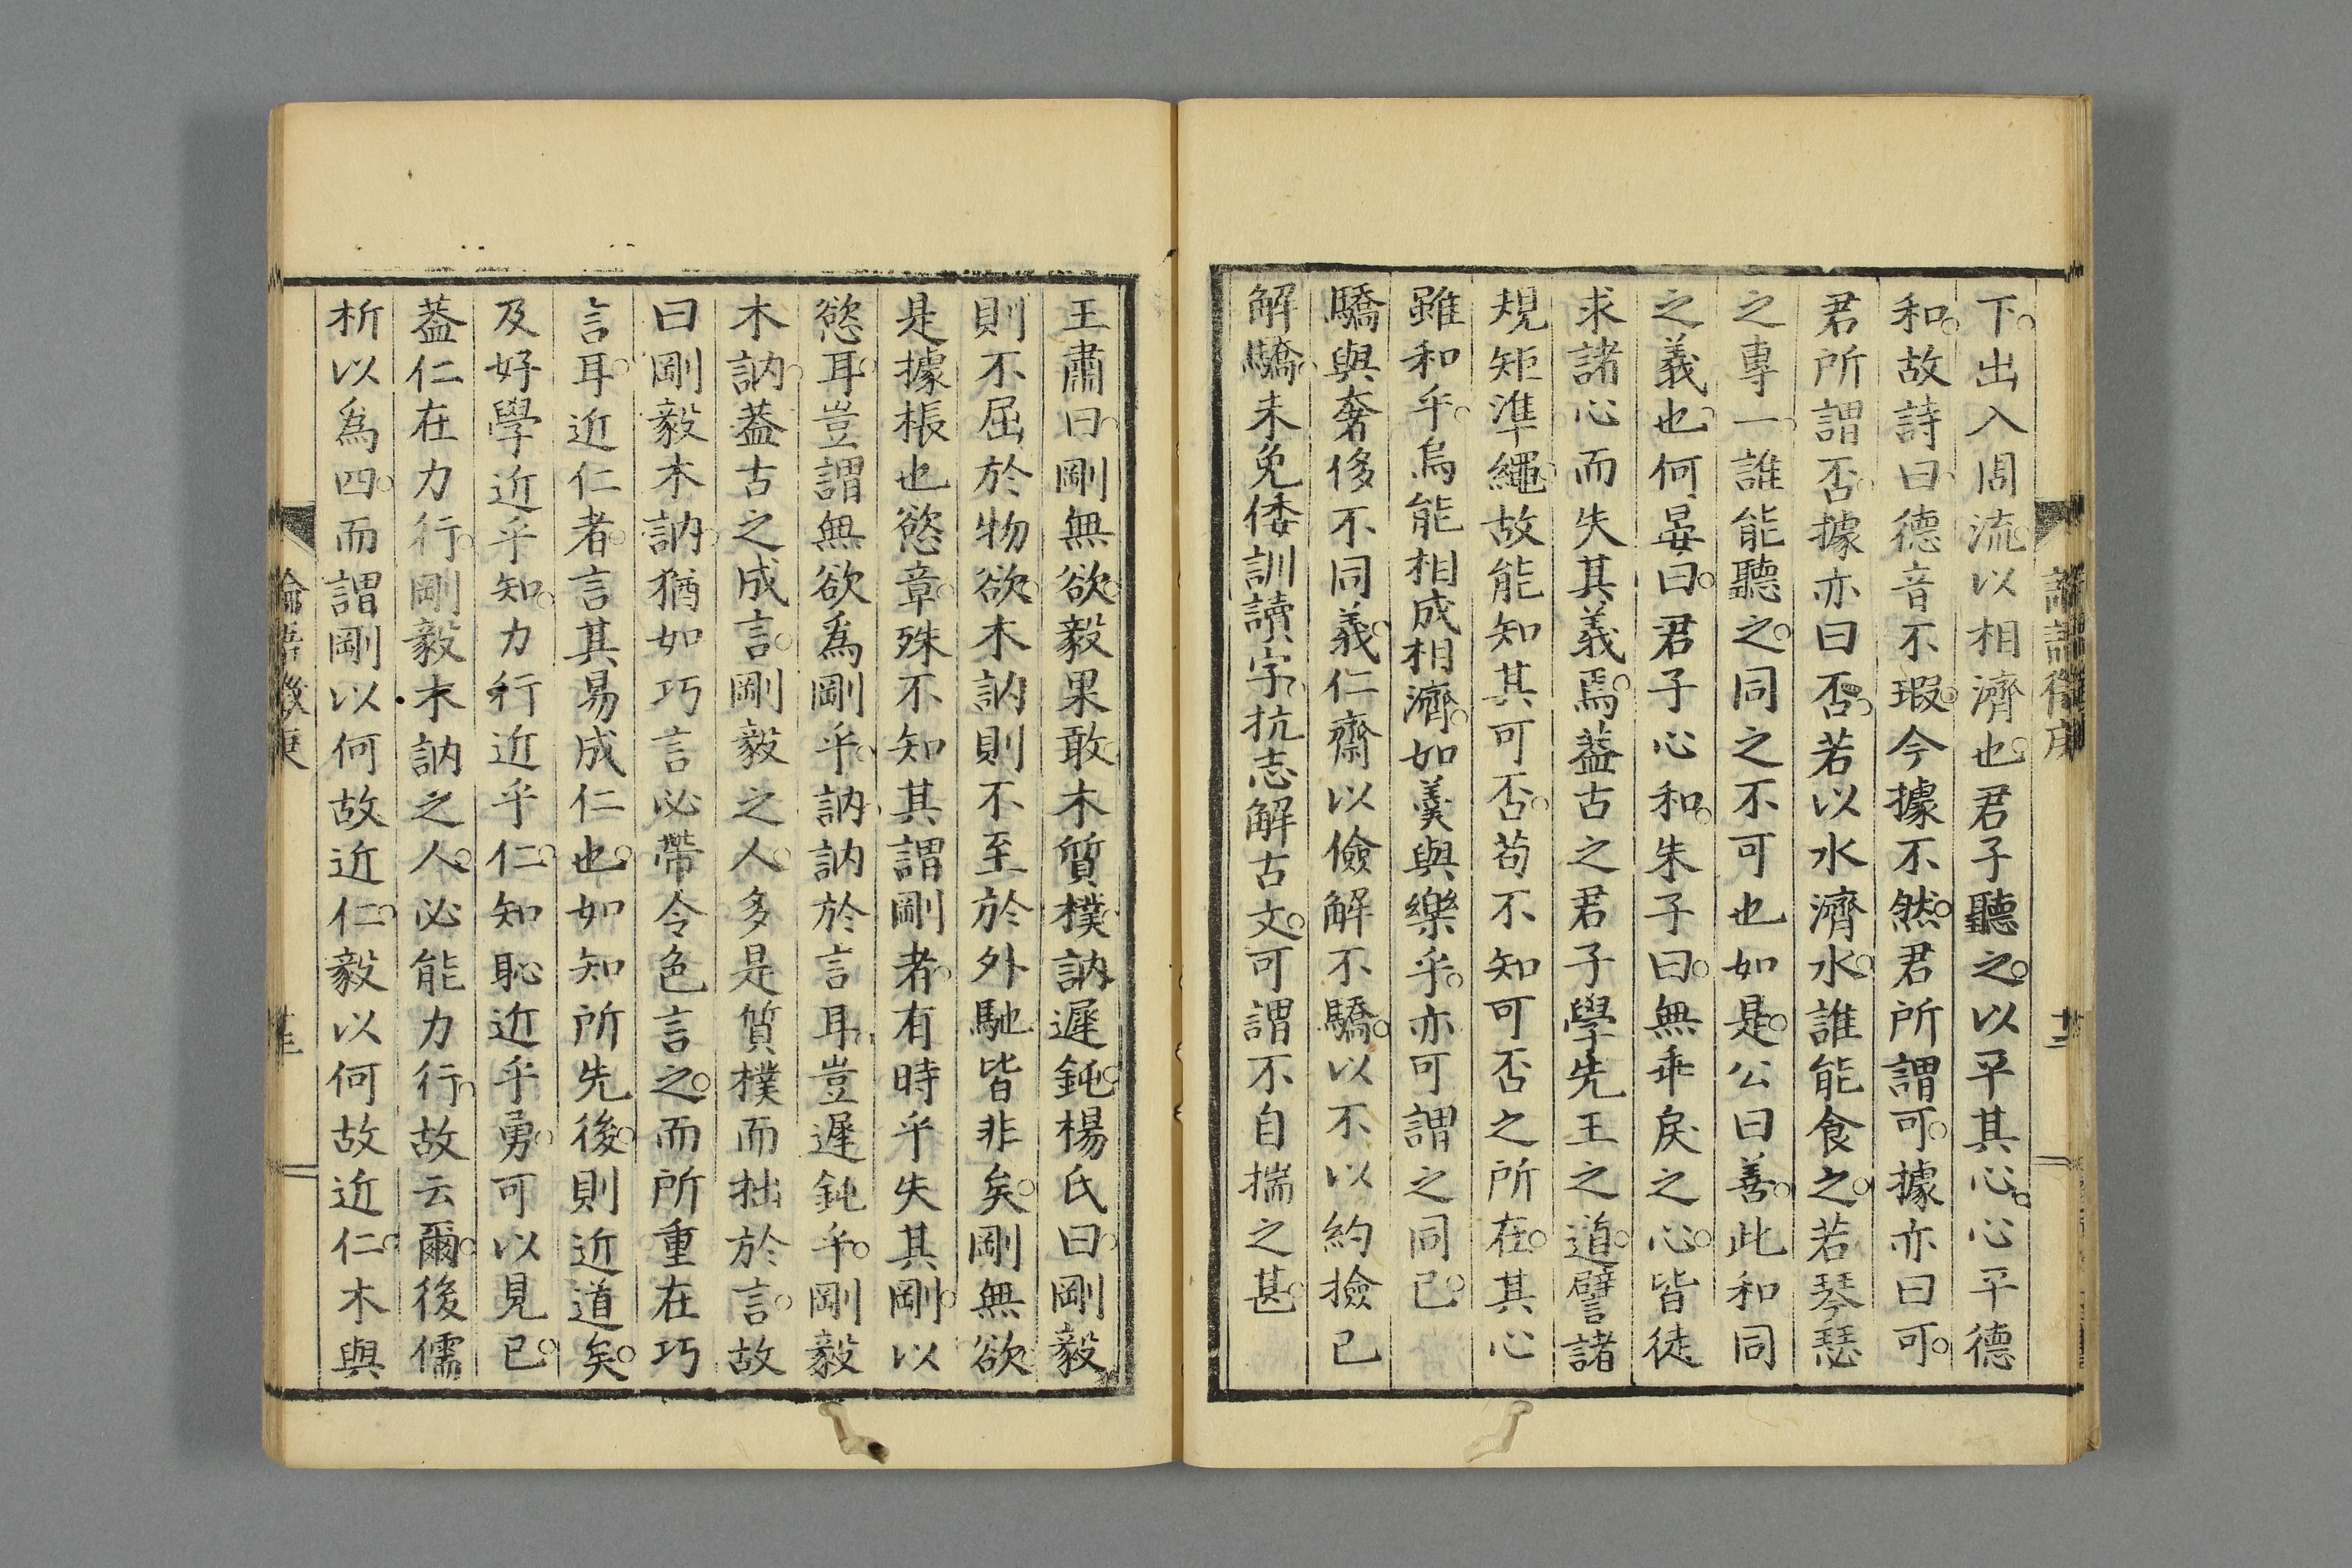 下出入周流以相濟也君子聽之以平其心心平德
和故詩曰德音不瑕今據不然君所謂可據亦曰可
君所謂否據亦曰否若以水濟水誰能食之若琴瑟
之專一誰能聽之同之不可也如是公曰善此和同
之義也何晏曰君子心和朱子曰無乖戾之心皆徒
求諸心而失其義焉蓋古之君子學先王之道譬諸
規矩準繩故能知其可否苟不知可否之所在其心
雖和乎烏能相成相濟如羹與樂乎亦可謂之同已
驕與奢侈不同義仁齋以儉解不驕以不以約撿已
解驕未免倭訓讀字抗志解古文可謂不自揣之甚
王肅曰剛無欲毅果敢木質樸訥遲鈍楊氏曰剛毅
則不屈於物欲木訥則不至於外馳皆非矣剛無欲
是據棖也慾章殊不知其謂剛者有時乎失其剛以
慾耳豈謂無欲爲剛乎訥訥於言耳豈遲鈍乎剛毅
木訥蓋古之成言剛毅之人多是質樸而拙於言故
曰剛毅木訥猶如巧言必帶令色言之而所重在巧
言耳近仁者言其易成仁也如知所先後則近道矣
及好學近乎知力行近乎仁知恥近乎勇可以見已
蓋仁在力行剛毅木訥之人必能力行故云爾後儒
析以爲四而謂剛以何故近仁毅以何故近仁木與